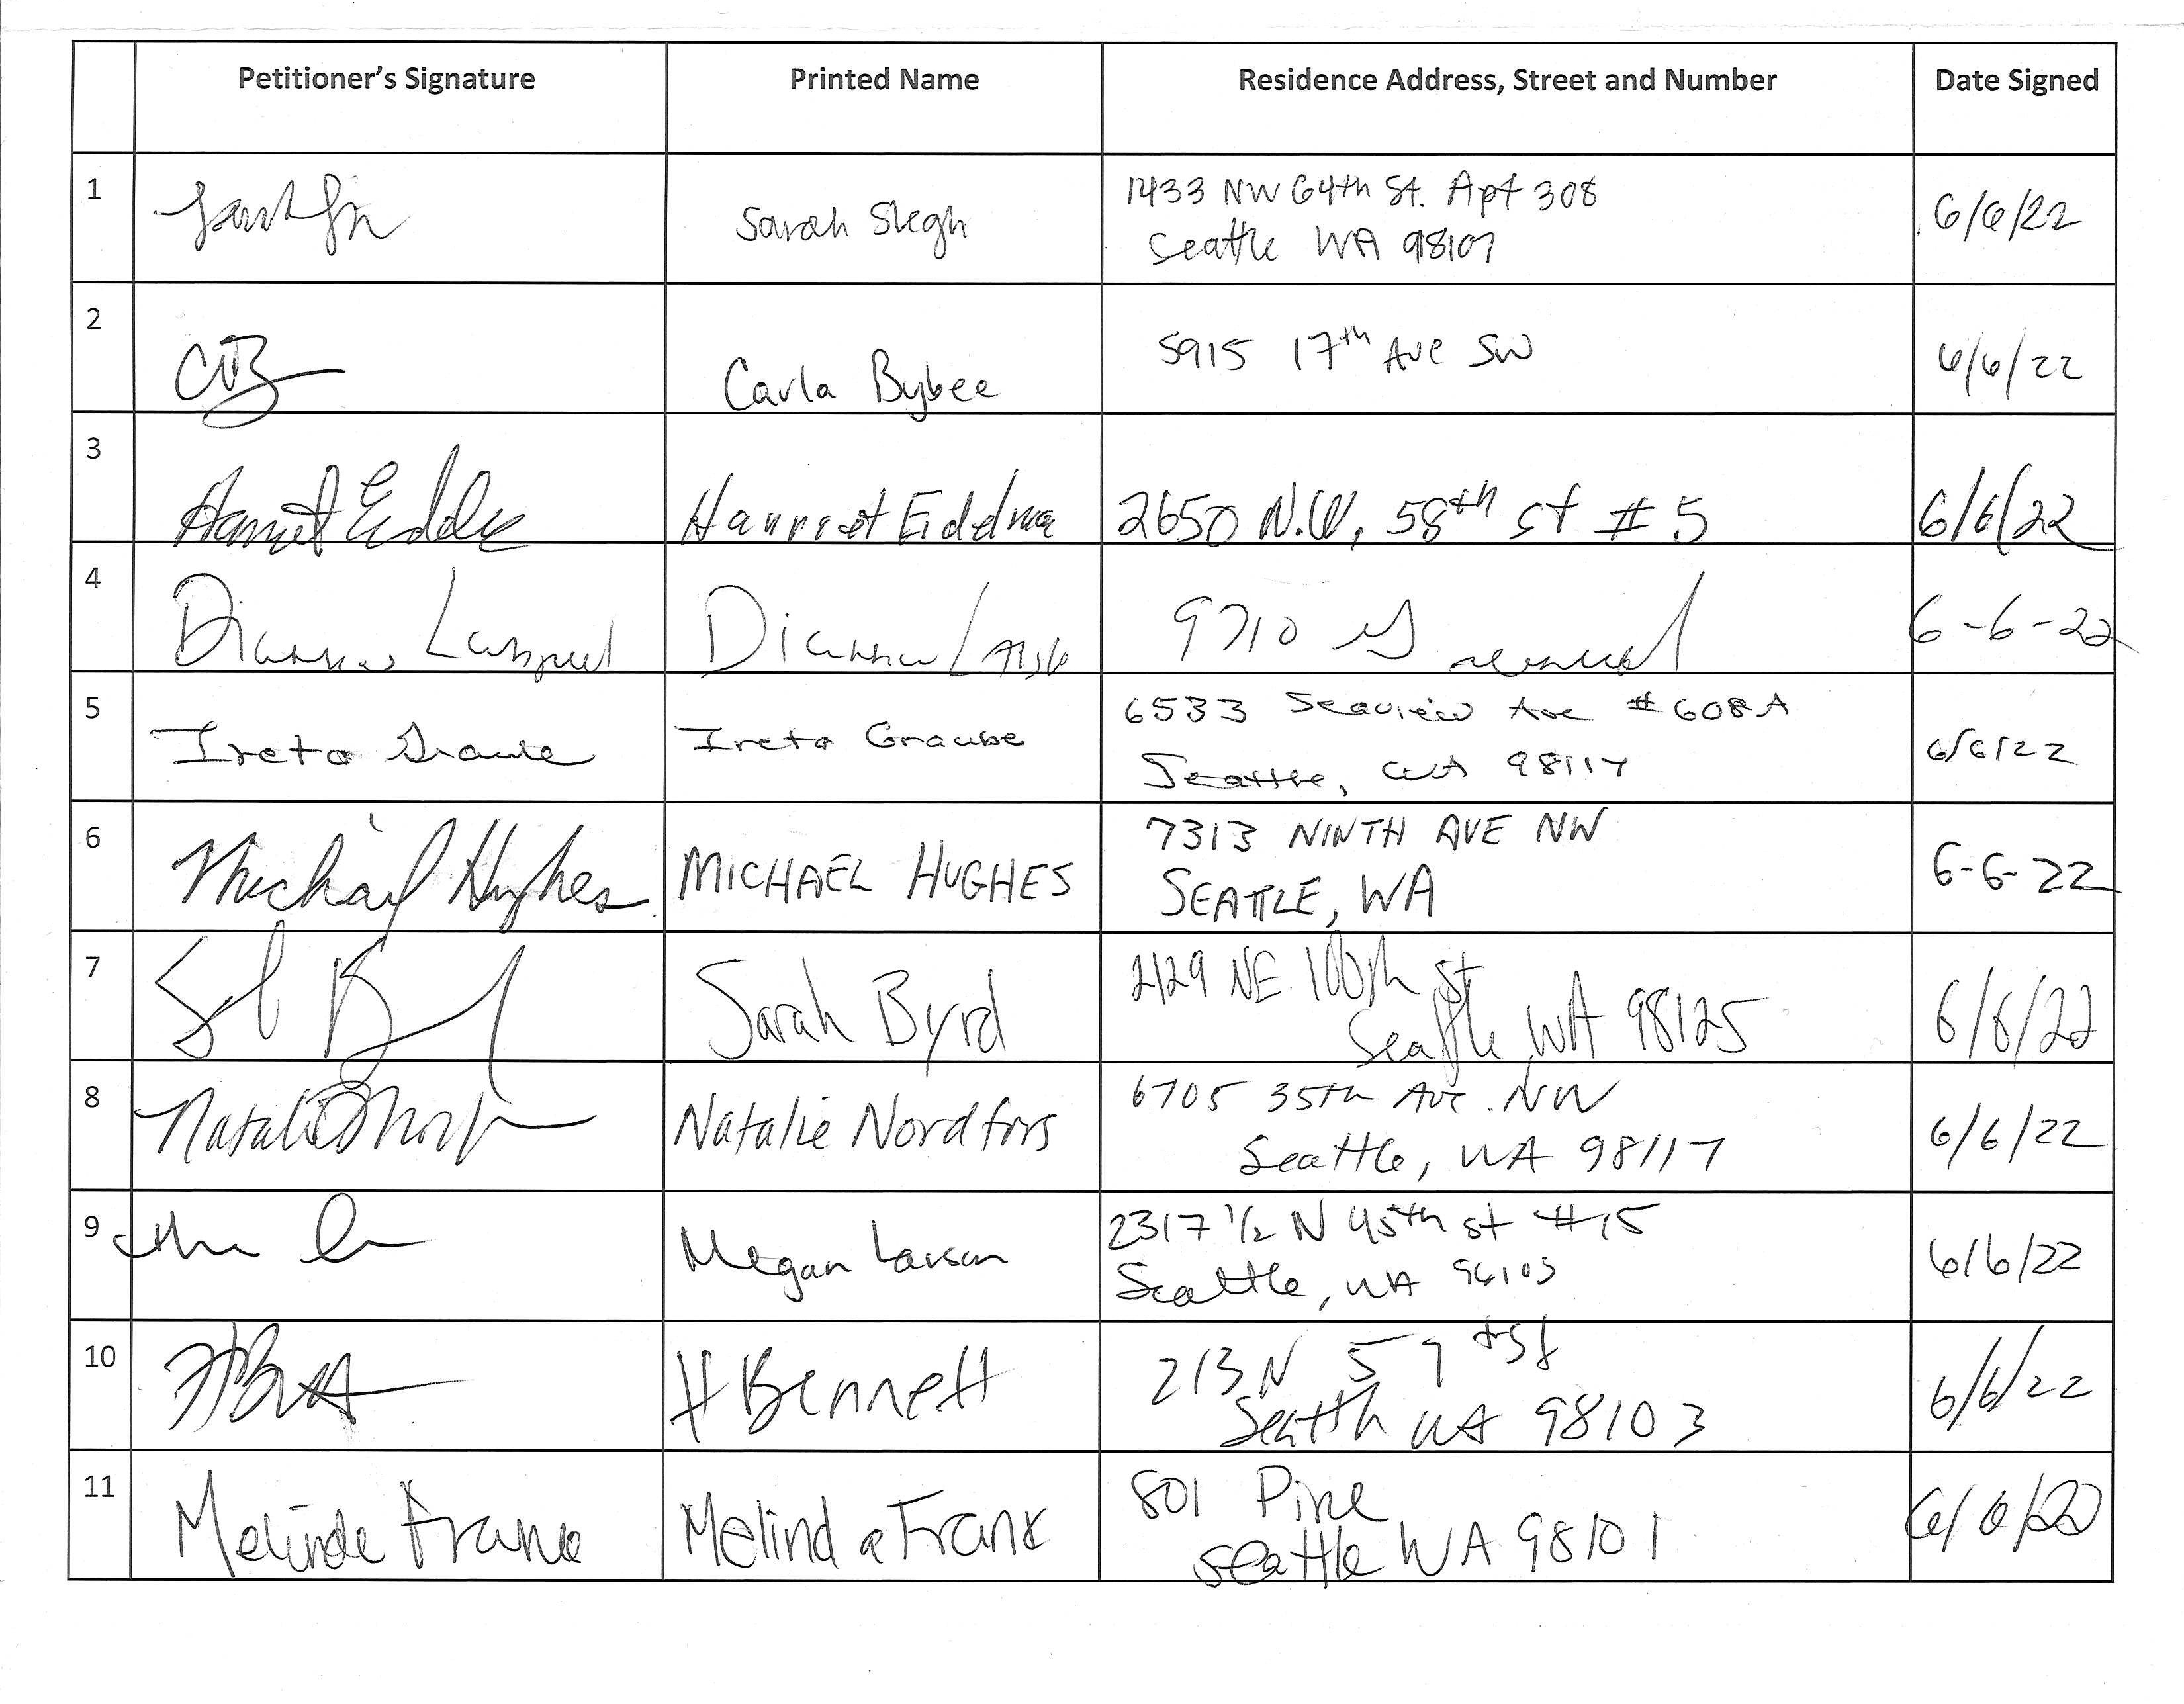 Petitioner's Signature Printed Name Residence Address, Street and Number Date Signed
1 Sarah Slegh 1433 NW 64th St. Apt 308 6/6/22
Seattle WA 98107
2 Carla Bybee 5915 17th Ave SW 6/6/22
3 2650 N.W. 58th st # 5 6/6/22
4 Dianna Dianna 9710 6-6-22
5 Ireta Graube Ireta Graube 6533 Seaview Ave # 608A 6/6/22
Seattle, WA 98117
6 Michael Hughes MICHAEL HUGHES 7313 NINTH AVE NW 6-6-22
SEATTLE, WA
7 Sarah Byrd 2129 NE 100th st 6/6/22
Seattle WA 98125
8 Natalie Natalie Nordfors 6705 35th Ave. NW 6/6/22
Seattle, WA 98117
9 Megan Larson 2317 1/2 N 45th st #15 6/6/22
Seattle, WA 98103
10 H Bennett 213 N 57th St 6/6/22
Seattle WA 98103
11 Melinda Frank Melinda Frank 801 Pine 6/6/22
Seattle WA 98101